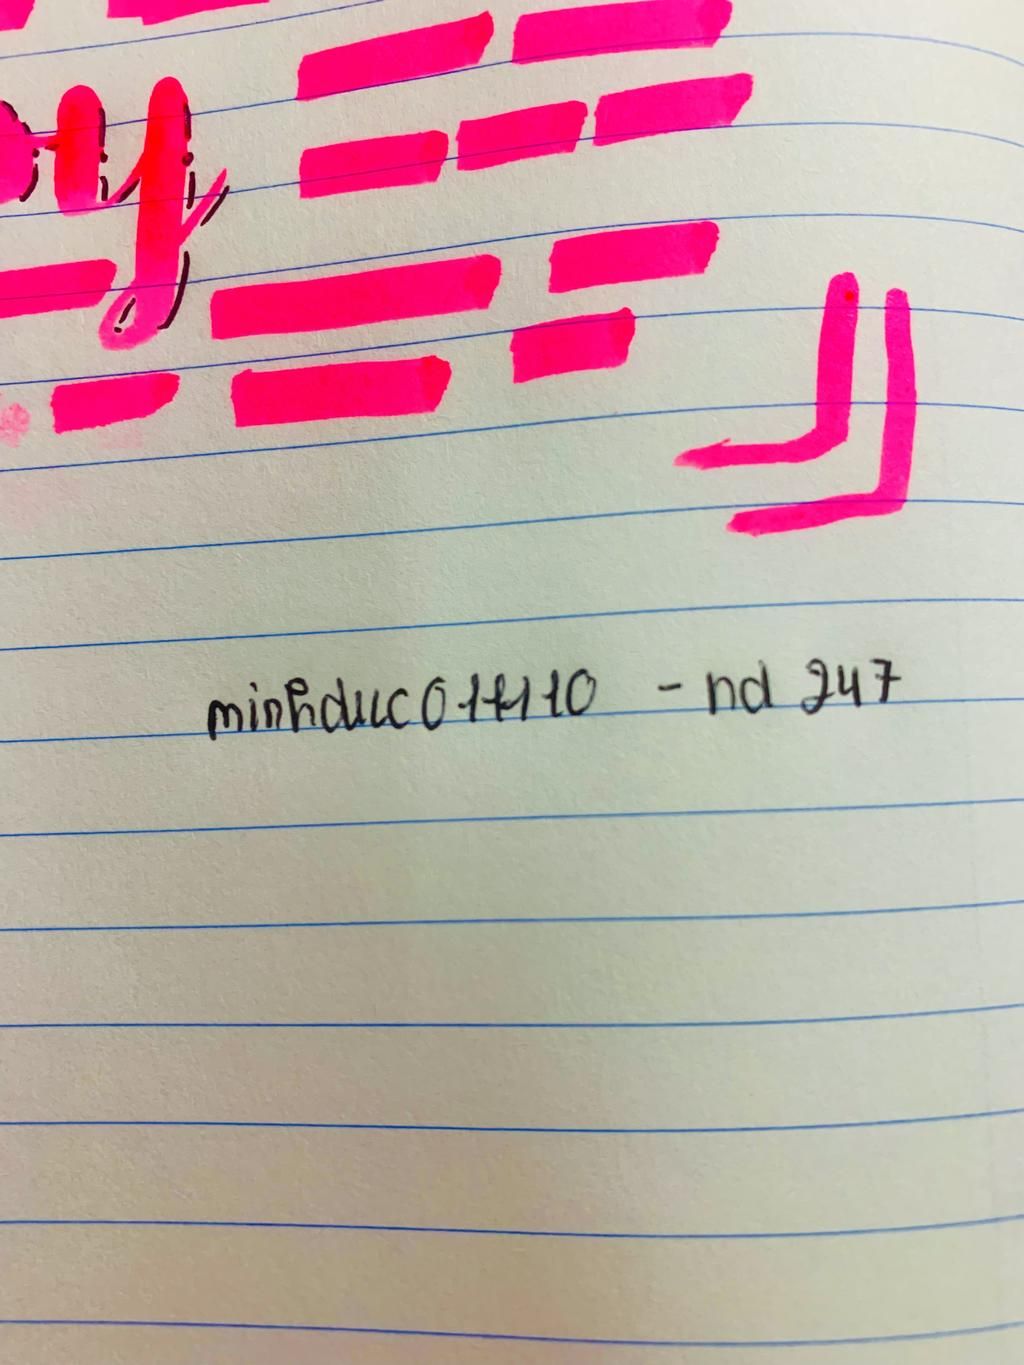 minhduc017110 - nd 247